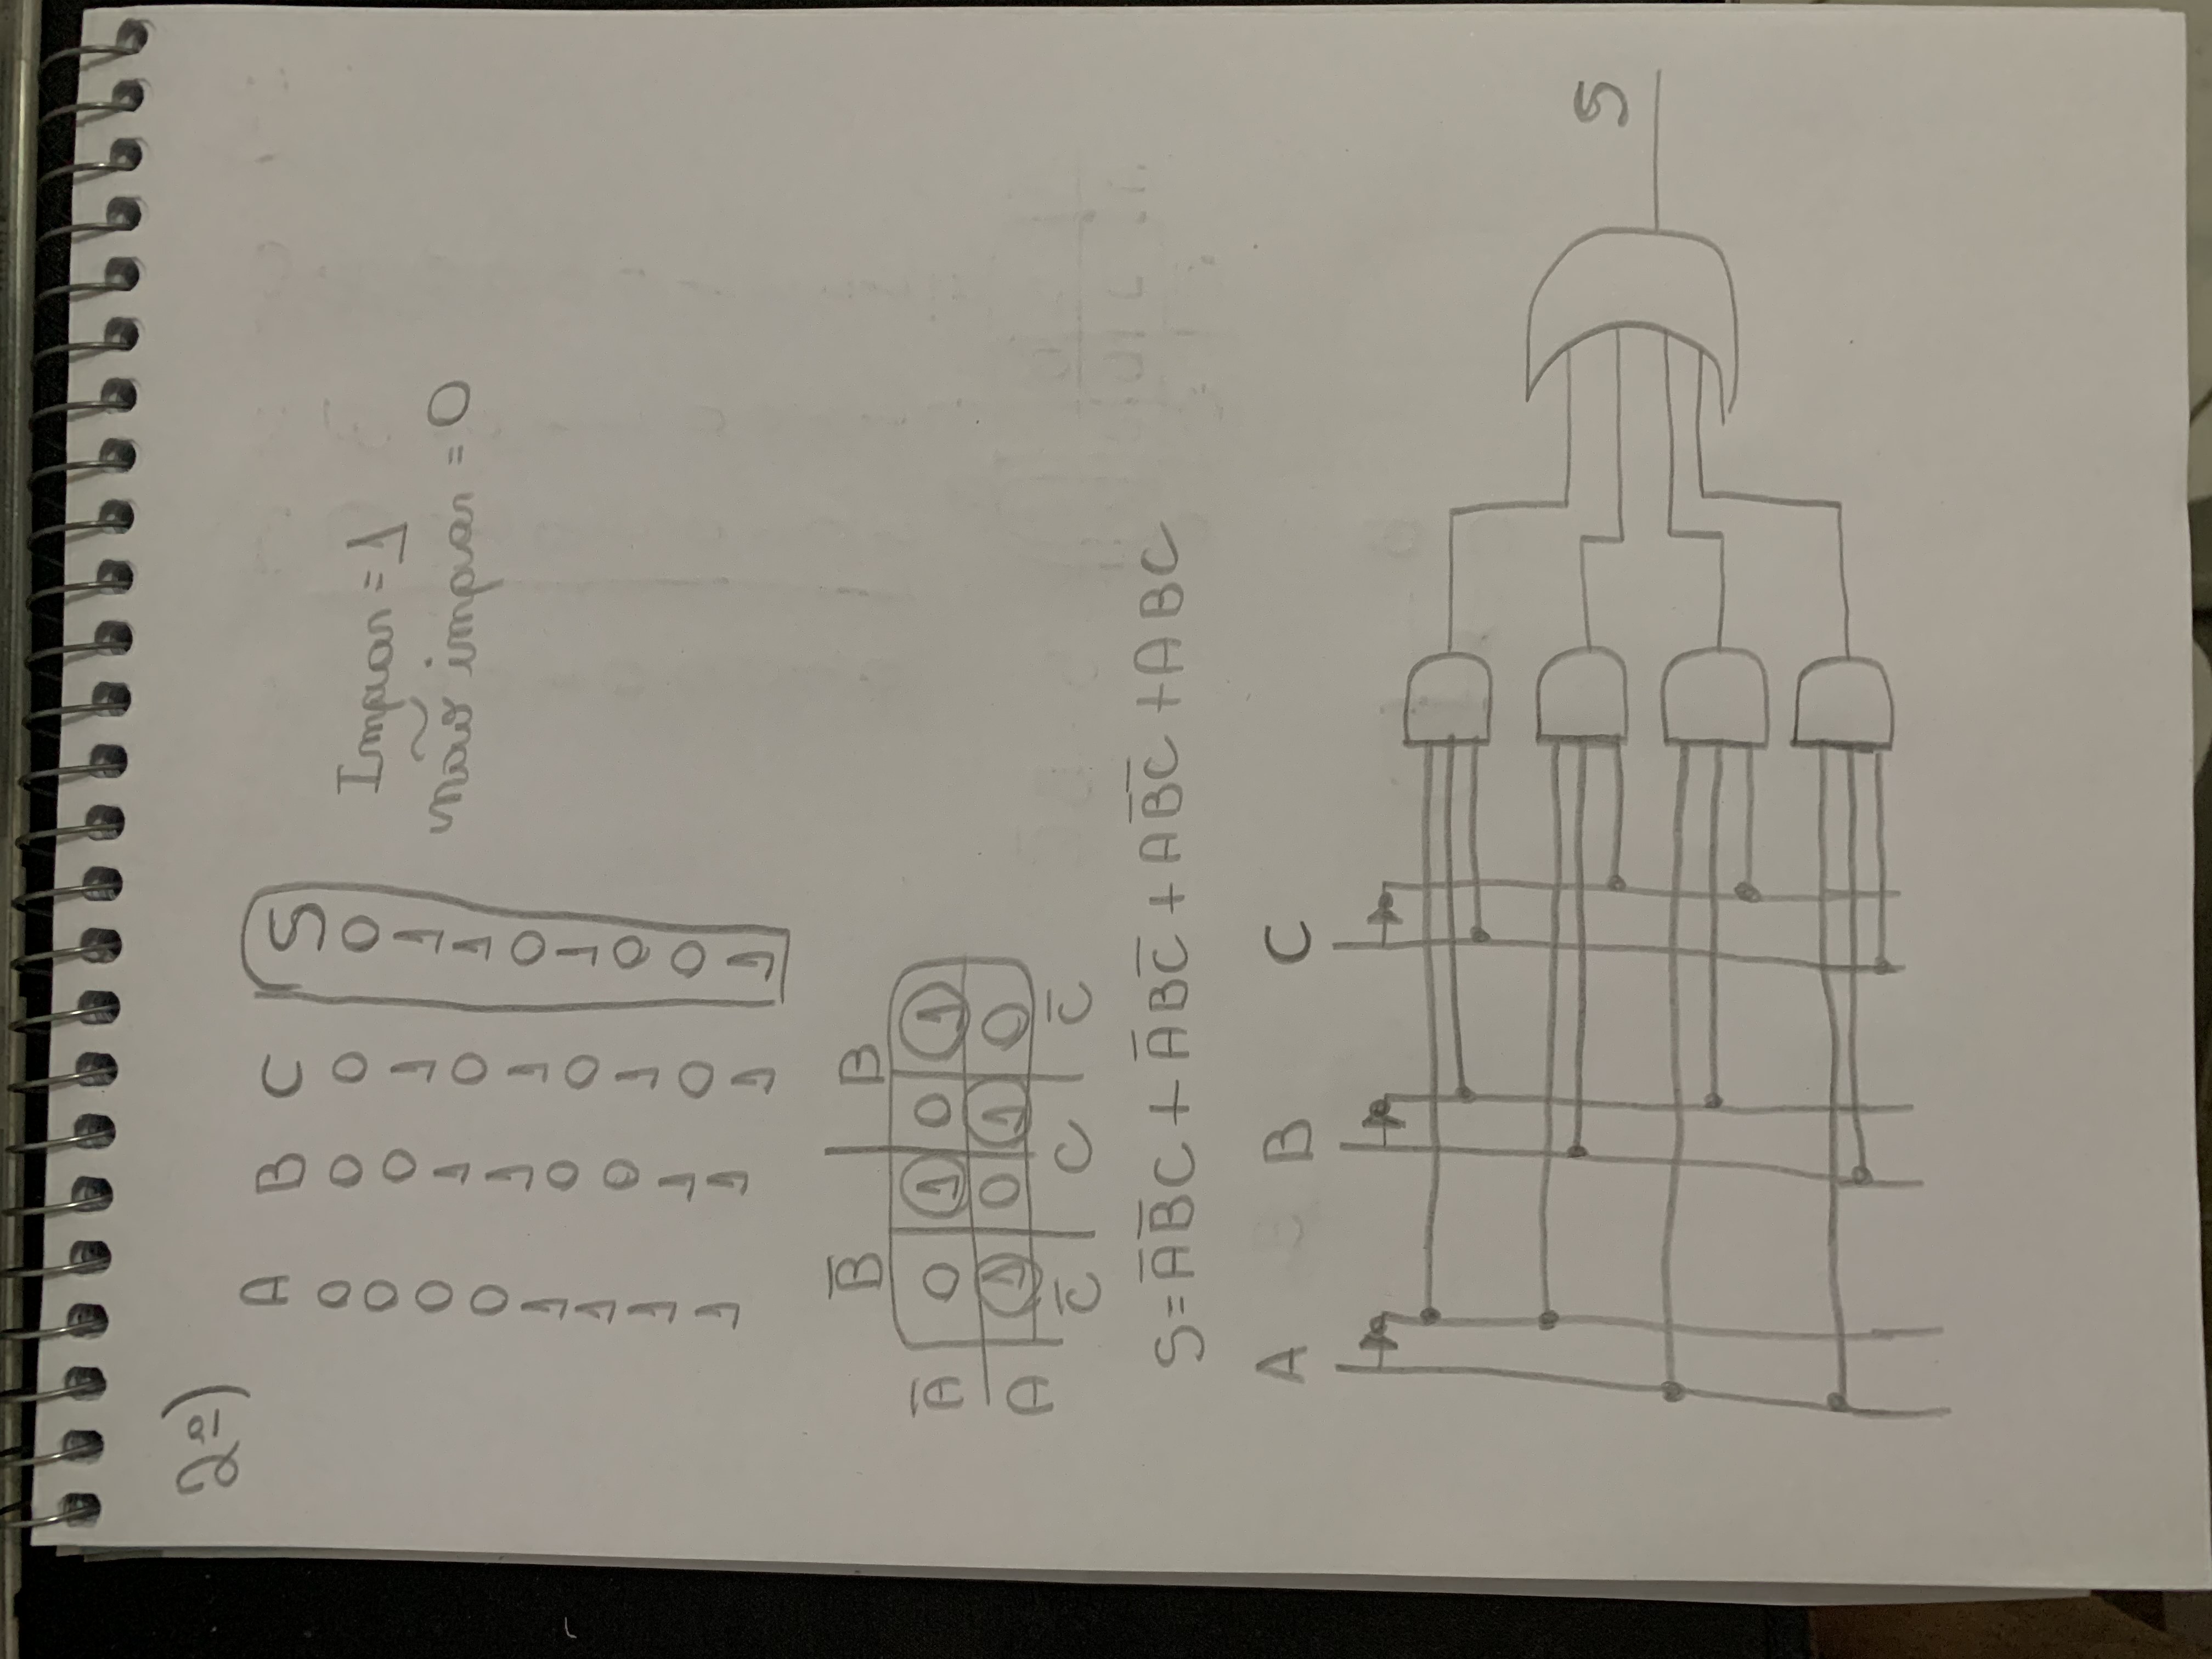 2ª)
A B C S
0 0 0 0
0 0 1 1
0 1 0 1
0 1 1 0
1 0 0 1
1 0 1 0
1 1 0 0
1 1 1 1
Impar = 1
não impar = 0
B̅ B
A̅ 0 1 0 1
A 1 0 1 0
C̅ C C̅
S = A̅ B̅ C + A̅ B C̅ + A B̅ C̅ + A B C
A B C
S